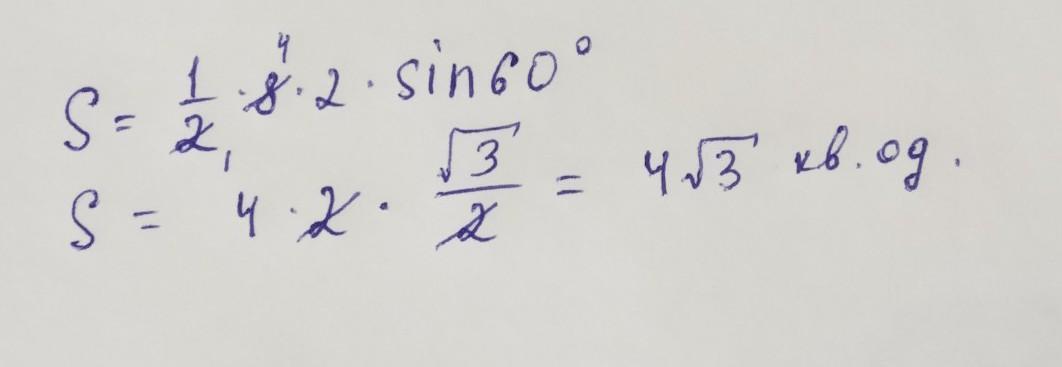 S = 1/2 · 8 · 2 · sin60°
S = 4 · 2 · √3/2 = 4√3 кв. од.